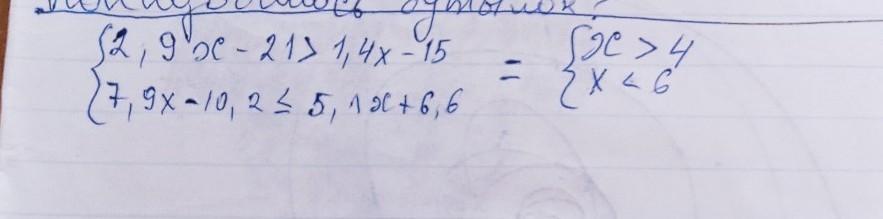 {2,9x - 21 > 1,4x - 15
{7,9x - 10,2 ≤ 5,1x + 6,6
= {x > 4
{x < 6